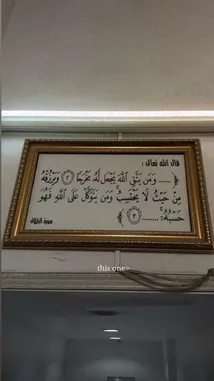 قال الله تعالى :
﴿ ..... وَمَن يَتَّقِ ٱللَّهَ يَجْعَل لَّهُۥ مَخْرَجًا ٢ وَيَرْزُقْهُ
مِنْ حَيْثُ لَا يَحْتَسِبُ وَمَن يَتَوَكَّلْ عَلَى ٱللَّهِ فَهُوَ
حَسْبُهُۥٓ ........ ٣ ﴾
سورة الطلاق
this one>